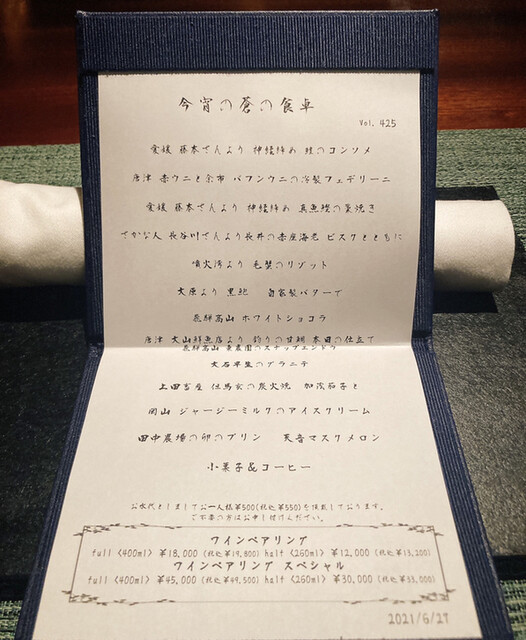 今宵の蒼の食卓
Vol. 425
愛媛 藤本さんより 神経締め 鱧のコンソメ
唐津 赤ウニと余市 バフンウニの冷製フェデリーニ
愛媛 藤本さんより 神経締め 真魚鰹の炭焼き
さかな人 長谷川さんより長井の赤座海老 ビスクとともに
噴火湾より 毛蟹のリゾット
大原より 黒鮑 自家製バターで
飛騨高山 ホワイトショコラ
唐津 大山鮮魚店より 釣りの甘鯛 本日の仕立て
飛騨高山 農園のスナップエンドウ
大石早生のグラニテ
上田畜産 但馬玄の炭火焼 加茂茄子と
岡山 ジャージーミルクのアイスクリーム
田中農場の卵のプリン 天音マスクメロン
小菓子&コーヒー
お水代としましてお一人様¥500(税込 ¥550)を頂戴しております。
ご不要の方はお申し付けください。
ワインペアリング
full <400ml> ¥18,000 (税込 ¥19,800) half <260ml> ¥12,000 (税込 ¥13,200)
ワインペアリング スペシャル
full <400ml> ¥45,000 (税込 ¥49,500) half <260ml> ¥30,000 (税込 ¥33,000)
2021/6/27